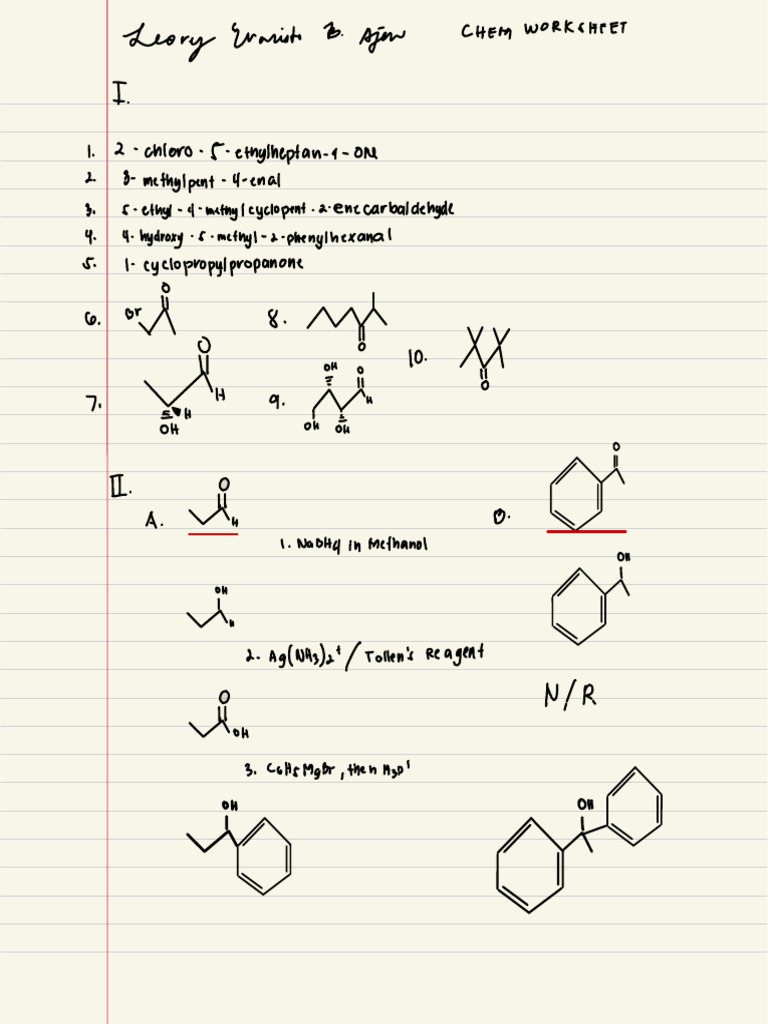 Leory Evaristo B. CHEM WORKSHEET
I.
1. 2-chloro-5-ethylheptan-4-one
2. 3-methylpent-4-enal
3. 5-ethyl-4-methylcyclopent-2-enecarbaldehyde
4. 4-hydroxy-5-methyl-2-phenylhexanal
5. 1-cyclopropylpropanone
6. Br O
7. O H H OH
8. O
9. OH O H OH OH
10. O
II.
A. O H
B. O
1. NaBH4 in Methanol
OH H
OH
2. Ag(NH3)2+/Tollen's Reagent
O OH
N/R
3. C6H5MgBr, then H3O+
OH
OH